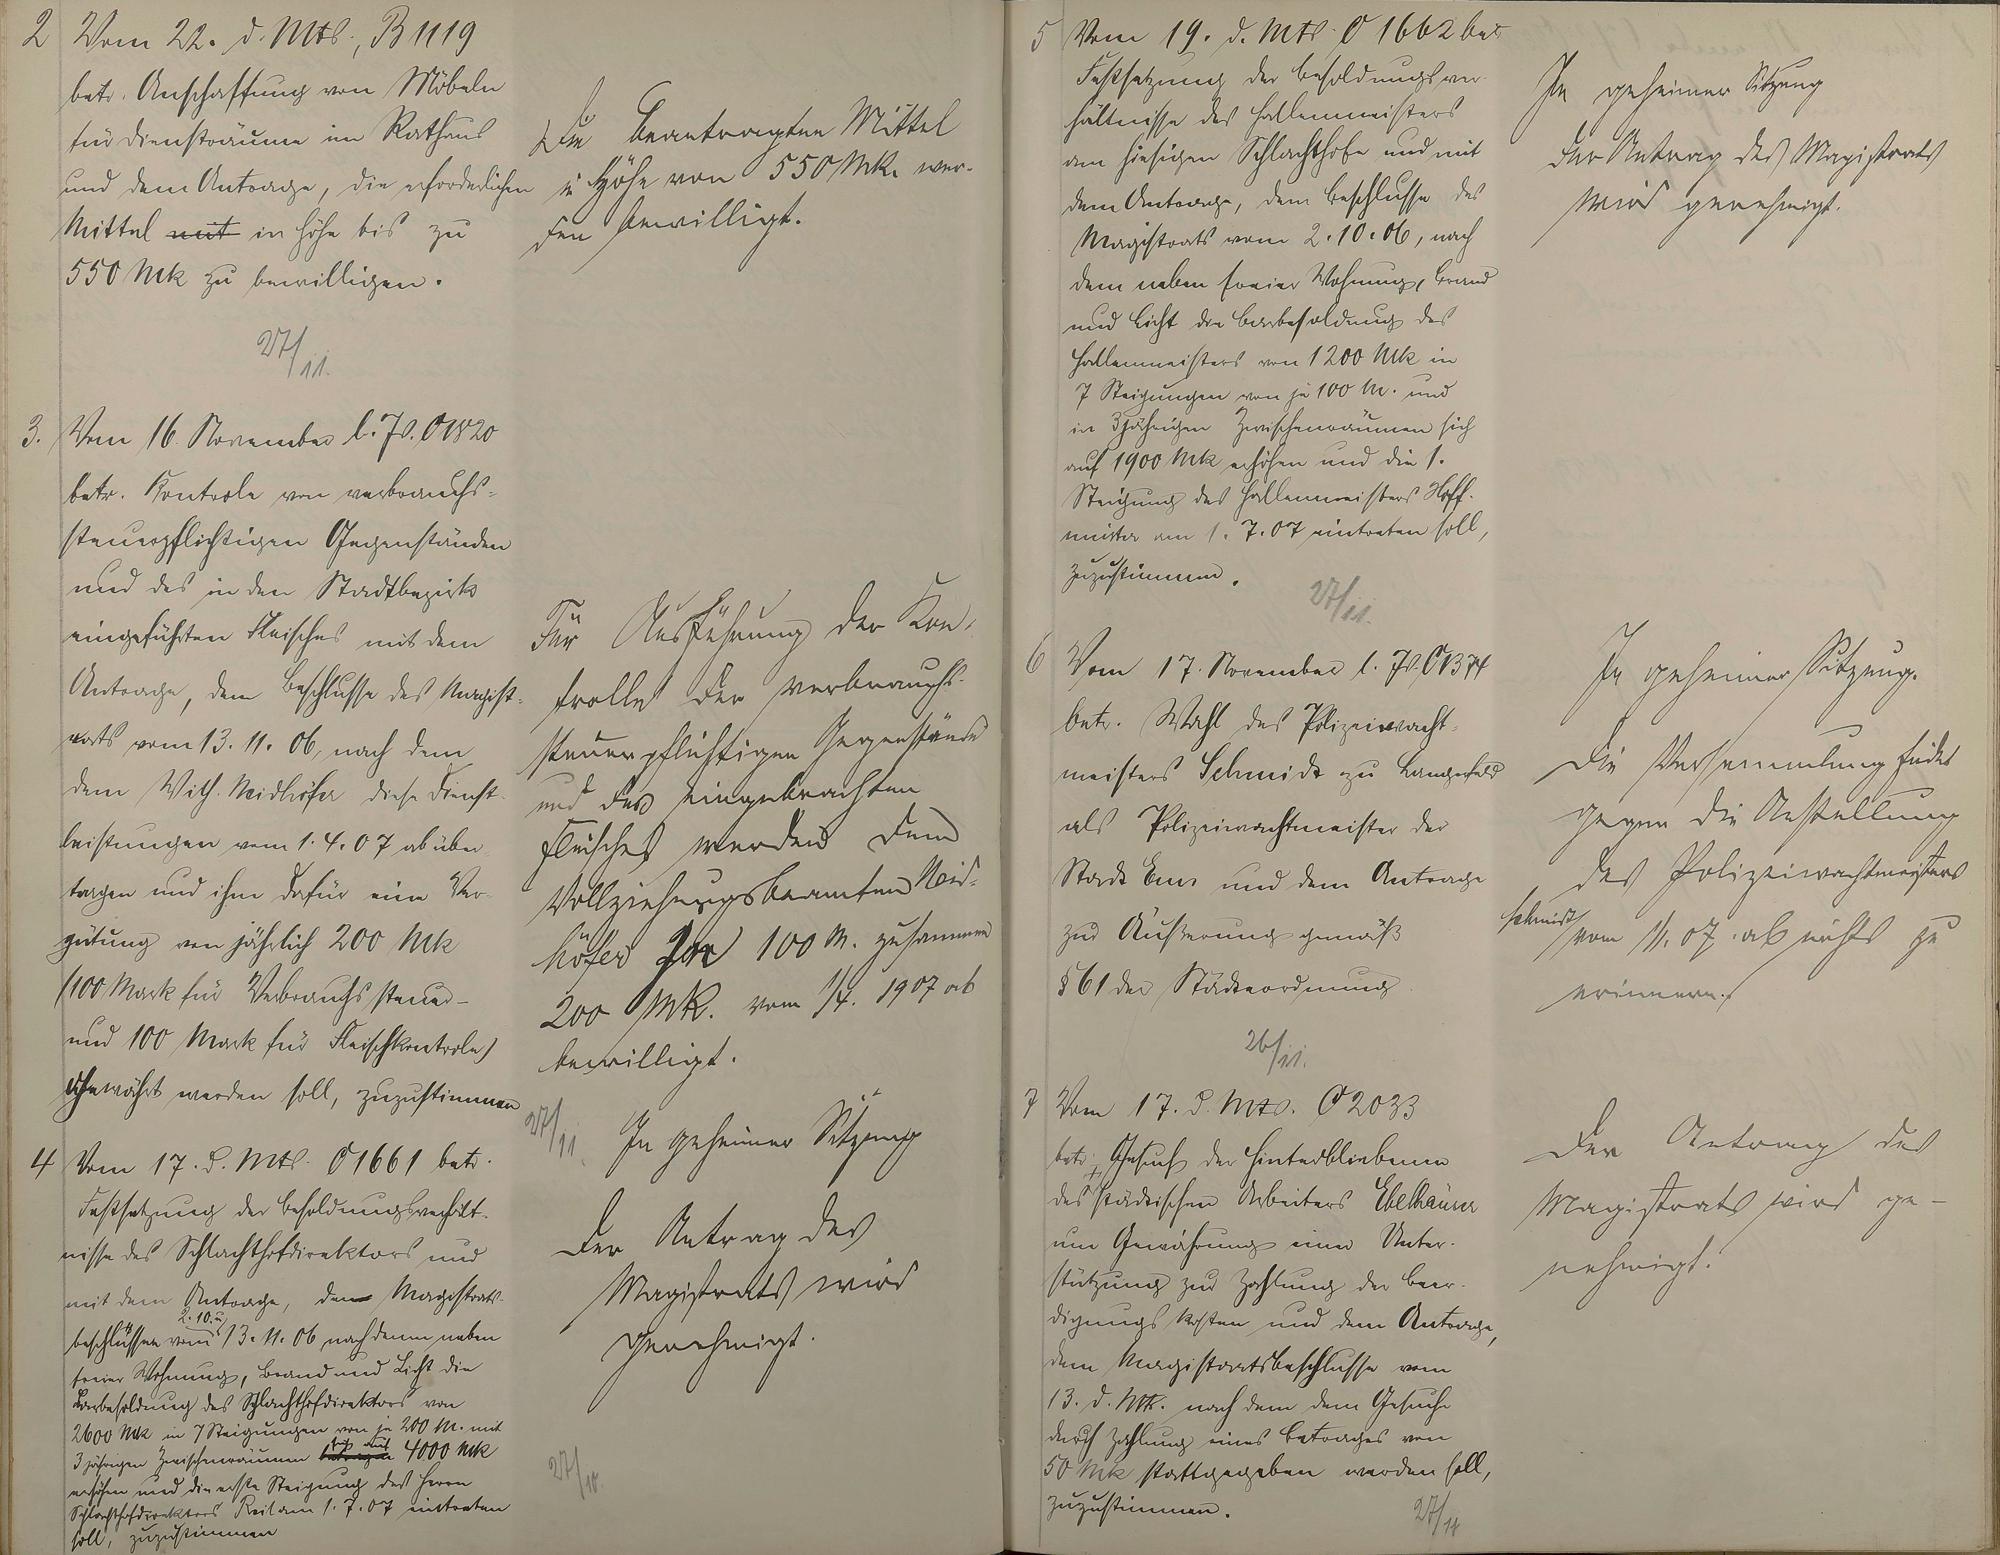 2 Vom 22. d. Mts., B 1119
betr. Anschaffung von Möbeln
für Diensträume im Rathaus
und dem Antrage, die erforderlichen
Mittel mit in Höhe bis zu
550 Mk zu bewilligen.
27/11.
Die beantragten Mittel
in Höhe von 550 Mk. wer-
den bewilligt.
3. Vom 16. November l. Js. C 1820
betr. Kontrole von verbrauchs-
steuerpflichtigen Gegenständen
und des in den Stadtbezirk
eingeführten Fleisches mit dem
Antrage, dem Beschlusse des Magist-
rats vom 13. 11. 06, nach dem
dem Neidhöfer diese Dienst-
leistungen vom 1. 4. 07 ab über-
tragen und ihm dafür eine Ver-
gütung von jährlich 200 Mk
(100 Mark für Verbrauchssteuer-
und 100 Mark für Fleischkontrole)
gewährt werden soll, zuzustimmen
27/11.
Für Ausführung der Kon-
trolle der verbrauchs-
steuerpflichtigen Gegenstände
und des eingebrachten
Fleisches werden dem
Vollziehungsbeamten Neid-
höfer je 100 M. zusammen
200 Mk. vom 1/4. 1907 ab
bewilligt.
4 Vom 17. d. Mts. C 1661 betr.
Festsetzung der Besoldungsverhält-
nisse des Schlachthofdirektors und
mit dem Antrage, den Magistrats-
2. 10. u
beschlüssen vom 13. 11. 06 nach denen neben
freier Wohnung, Brand und Licht die
Barbesoldung des Schlachthofdirektors von
2600 Mk in 7 Steigungen von je 200 M. mit
3 jährigen Zwischenräumen bis auf 4000 Mk
erhöhen und die erste Steigung des Herrn
Schlachthofdirektors Reil am 1. 7. 07 eintreten
soll, zuzustimmen
In geheimer Sitzung
Der Antrag des
Magistrats wird
genehmigt.
27/10.
5 Vom 19. d. Mts. C 1662 betr
Festsetzung der Besoldungsver-
hältnisse des Hallenmeisters
am hiesigen Schlachthofe und mit
dem Antrage, dem Beschlusse des
Magistrats vom 2. 10. 06, nach
dem neben freier Wohnung, Brand
und Licht die Barbesoldung des
Hallenmeisters von 1200 Mk in
7 Steigungen von je 100 M. und
in 3jährigen Zwischenräumen sich
auf 1900 Mk erhöhen und die 1.
Steigung des Hallenmeisters Hoff-
meister am 1. 7. 07 eintreten soll,
zuzustimmen.
27/11.
In geheimer Sitzung
Der Antrag des Magistrats
wird genehmigt.
6 Vom 17. November l. Js. C 1374
betr. Wahl des Polizeiwacht-
meisters Schmidt zu Langefeld
als Polizeiwachtmeister der
Stadt Ems und dem Antrage
zur Äußerung gemäß
§ 61 der Städteordnung.
26/11.
In geheimer Sitzung.
Die Versammlung findet
gegen die Anstellung
des Polizeiwachtmeisters
Schmidt vom 1/1. 07. ab nichts zu
erinnern.
7 Vom 17. d. Mts. C 2033
betr. Gesuch der Hinterbliebenen
des städtischen Arbeiters Ebelhäuser
um Gewährung einer Unter-
stützung zur Zahlung der Beer-
digungskosten und dem Antrage,
dem Magistratsbeschlusse vom
13. d. Mts. nach dem dem Gesuche
durch Zahlung eines Betrages von
50 Mk stattgegeben werden soll,
zuzustimmen.
27/11
Der Antrag des
Magistrats wird ge-
nehmigt.